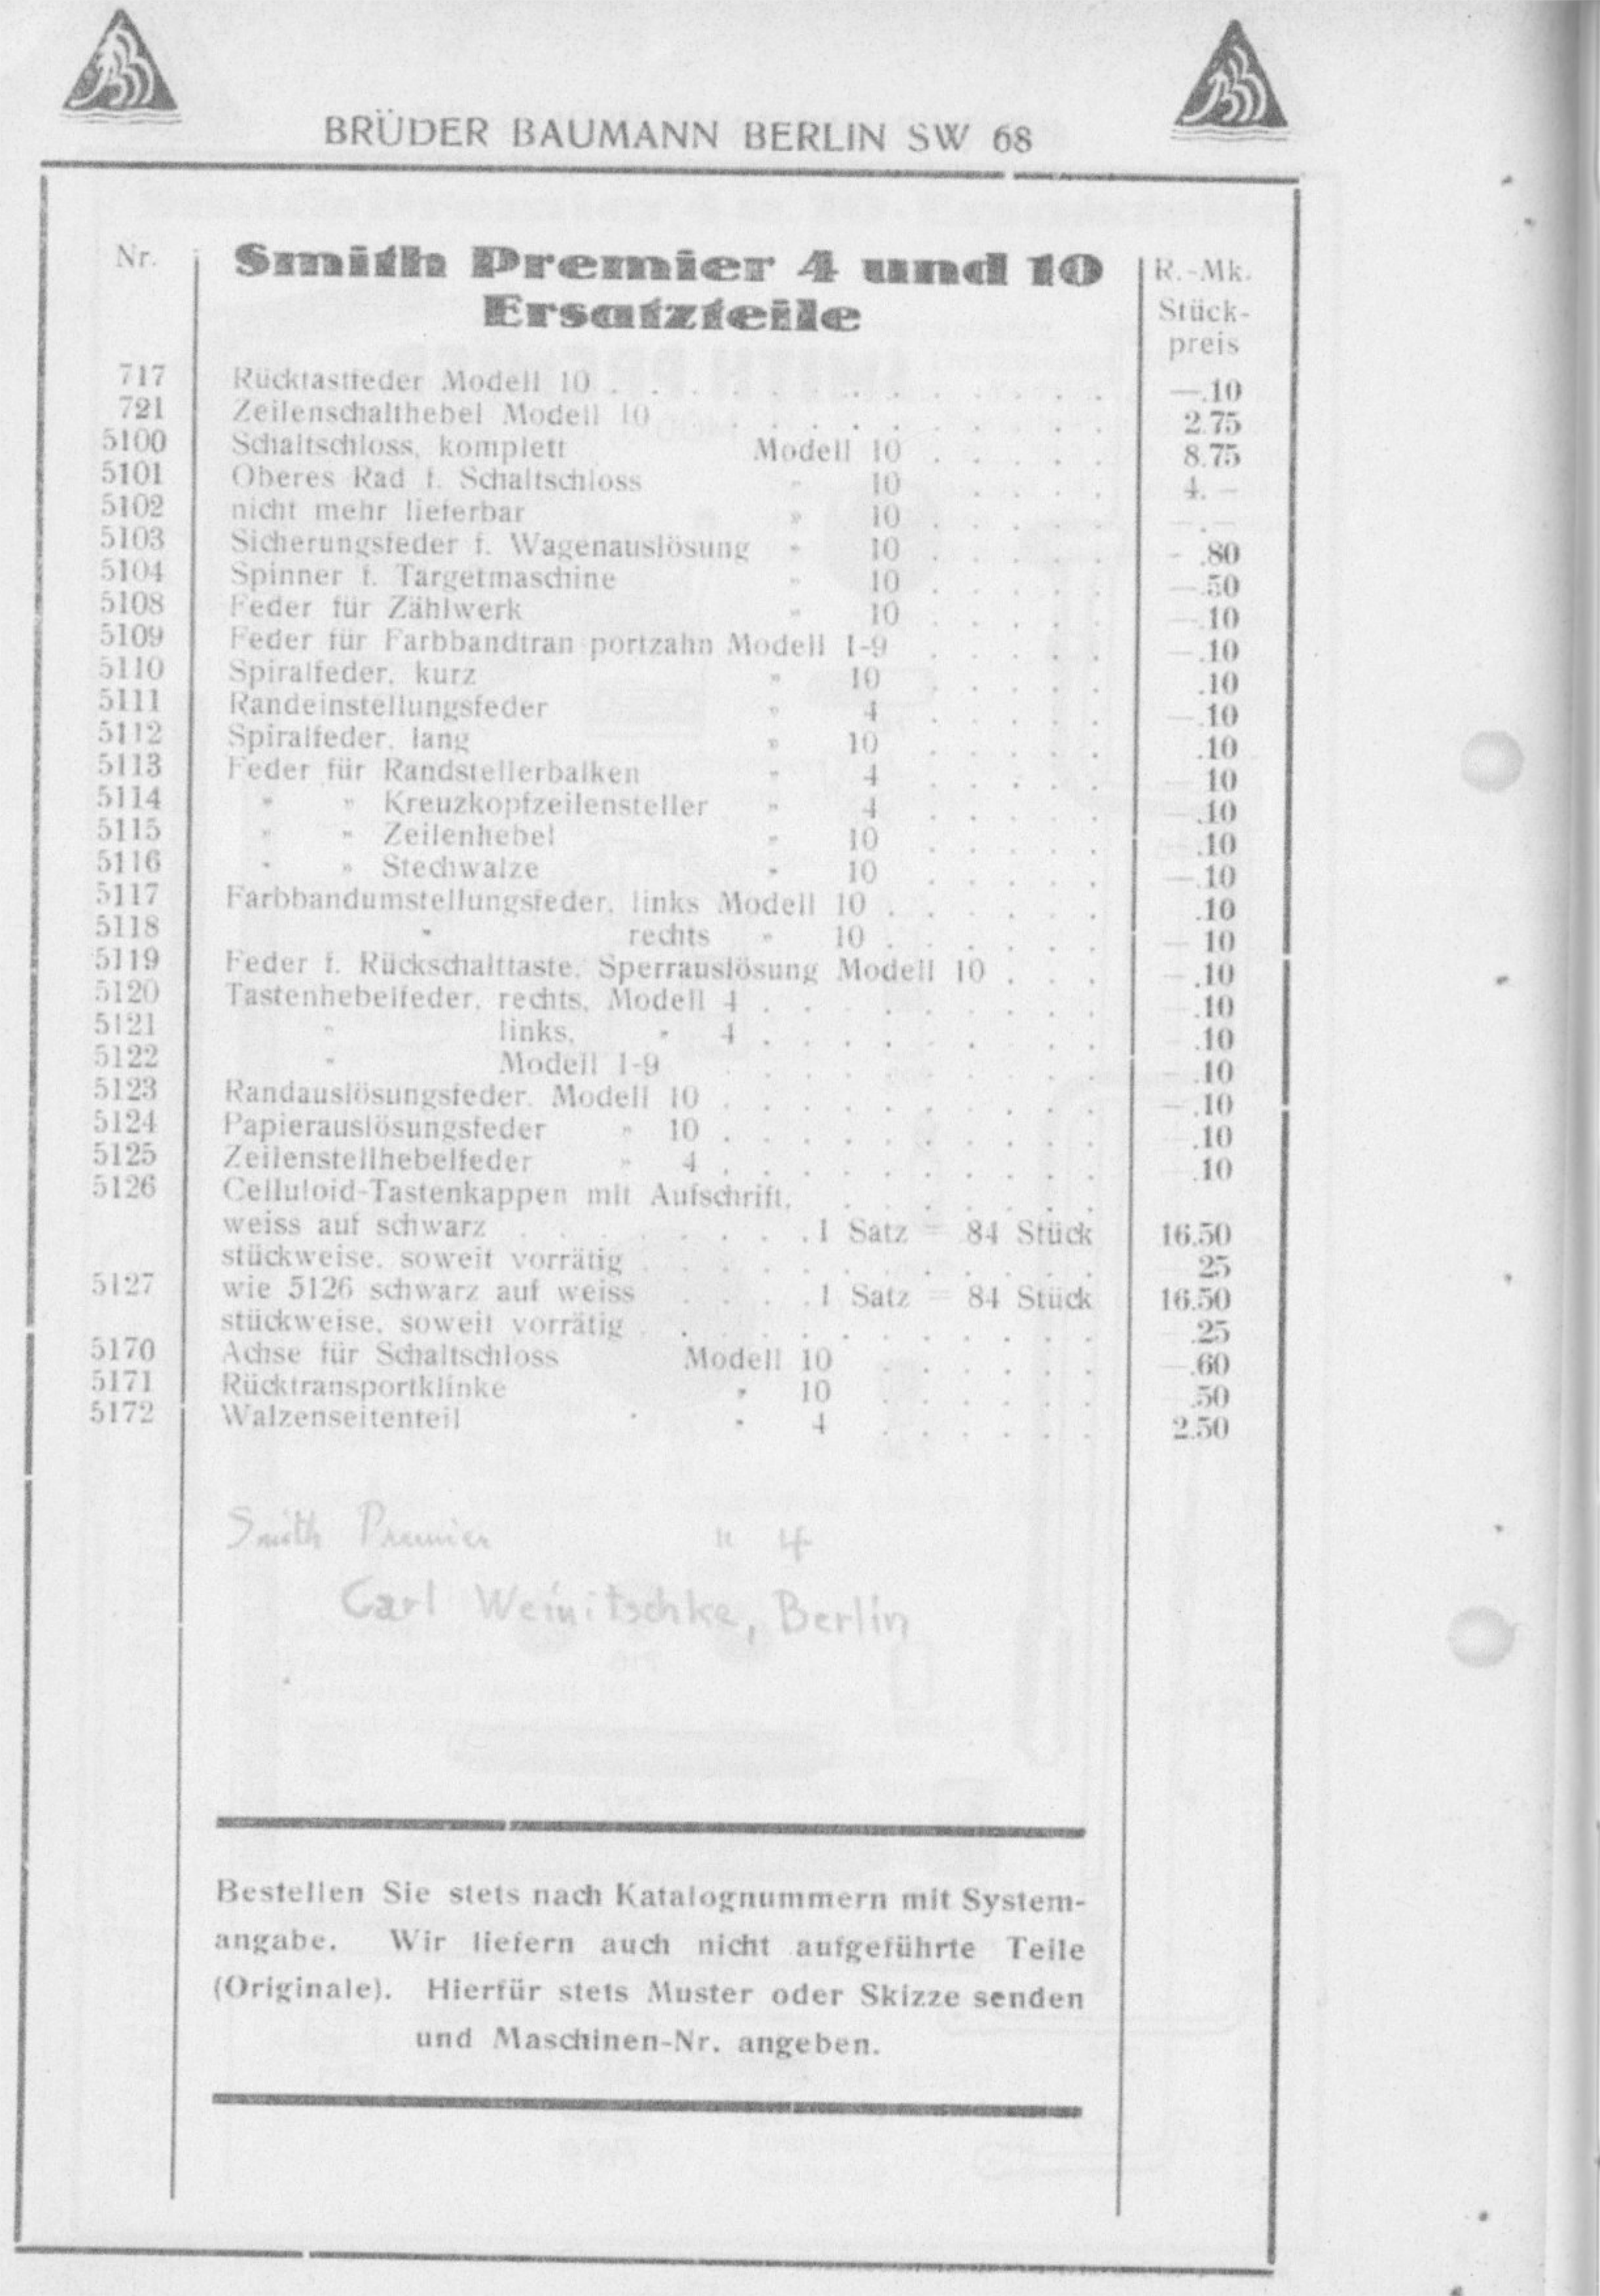 BRÜDER BAUMANN BERLIN SW 68
Nr. Smith Premier 4 und 10 R.-Mk.
Ersatzteile Stück-
preis
717 Rücktastfeder Modell 10 . . . . . . . . . . . . . —.10
721 Zeilenschalthebel Modell 10 . . . . . . . . . . 2.75
5100 Schaltschloss, komplett Modell 10 . . . . . 8.75
5101 Oberes Rad f. Schaltschloss " 10 . . . . 4. —
5102 nicht mehr lieferbar " 10 . . . . . —.—
5103 Sicherungsfeder f. Wagenauslösung " 10 . . . . . - .80
5104 Spinner f. Targetmaschine " 10 . . . . . —.50
5108 Feder für Zählwerk " 10 . . . . . —.10
5109 Feder für Farbbandtran portzahn Modell 1-9 . . . . . —.10
5110 Spiralfeder, kurz " 10 . . . . . .10
5111 Randeinstellungsfeder " 4 . . . . . —.10
5112 Spiralfeder, lang " 10 . . . . . .10
5113 Feder für Randstellerbalken " 4 . . . . . — 10
5114 " " Kreuzkopfzeilensteller " 4 . . . . . —.10
5115 " " Zeilenhebel " 10 . . . . . .10
5116 " " Stechwalze " 10 . . . . . —.10
5117 Farbbandumstellungsfeder, links Modell 10 . . . . . . .10
5118 " rechts " 10 . . . . . . — 10
5119 Feder f. Rückschalttaste, Sperrauslösung Modell 10 . . . —.10
5120 Tastenhebelfeder, rechts, Modell 4 . . . . . . . . . —.10
5121 " links, " 4 . . . . . . . . . .10
5122 " Modell 1-9 . . . . . . . . . . —.10
5123 Randauslösungsfeder, Modell 10 . . . . . . . . . . —.10
5124 Papierauslösungsfeder " 10 . . . . . . . . . . .10
5125 Zeilenstellhebelfeder " 4 . . . . . . . . . . .10
5126 Celluloid-Tastenkappen mit Aufschrift, . . . . . . .
weiss auf schwarz . . . . . . . . 1 Satz = 84 Stück 16.50
stückweise, soweit vorrätig . . . . . . . . . . . . 25
5127 wie 5126 schwarz auf weiss . . . . 1 Satz = 84 Stück 16.50
stückweise, soweit vorrätig . . . . . . . . . . . . .25
5170 Achse für Schaltschloss Modell 10 . . . . . . —.60
5171 Rücktransportklinke " 10 . . . . . . .50
5172 Walzenseitenteil " " 4 . . . . . . 2.50
Smith Premier " 4
Carl Weinitschke, Berlin
Bestellen Sie stets nach Katalognummern mit System-
angabe. Wir liefern auch nicht aufgeführte Teile
(Originale). Hierfür stets Muster oder Skizze senden
und Maschinen-Nr. angeben.